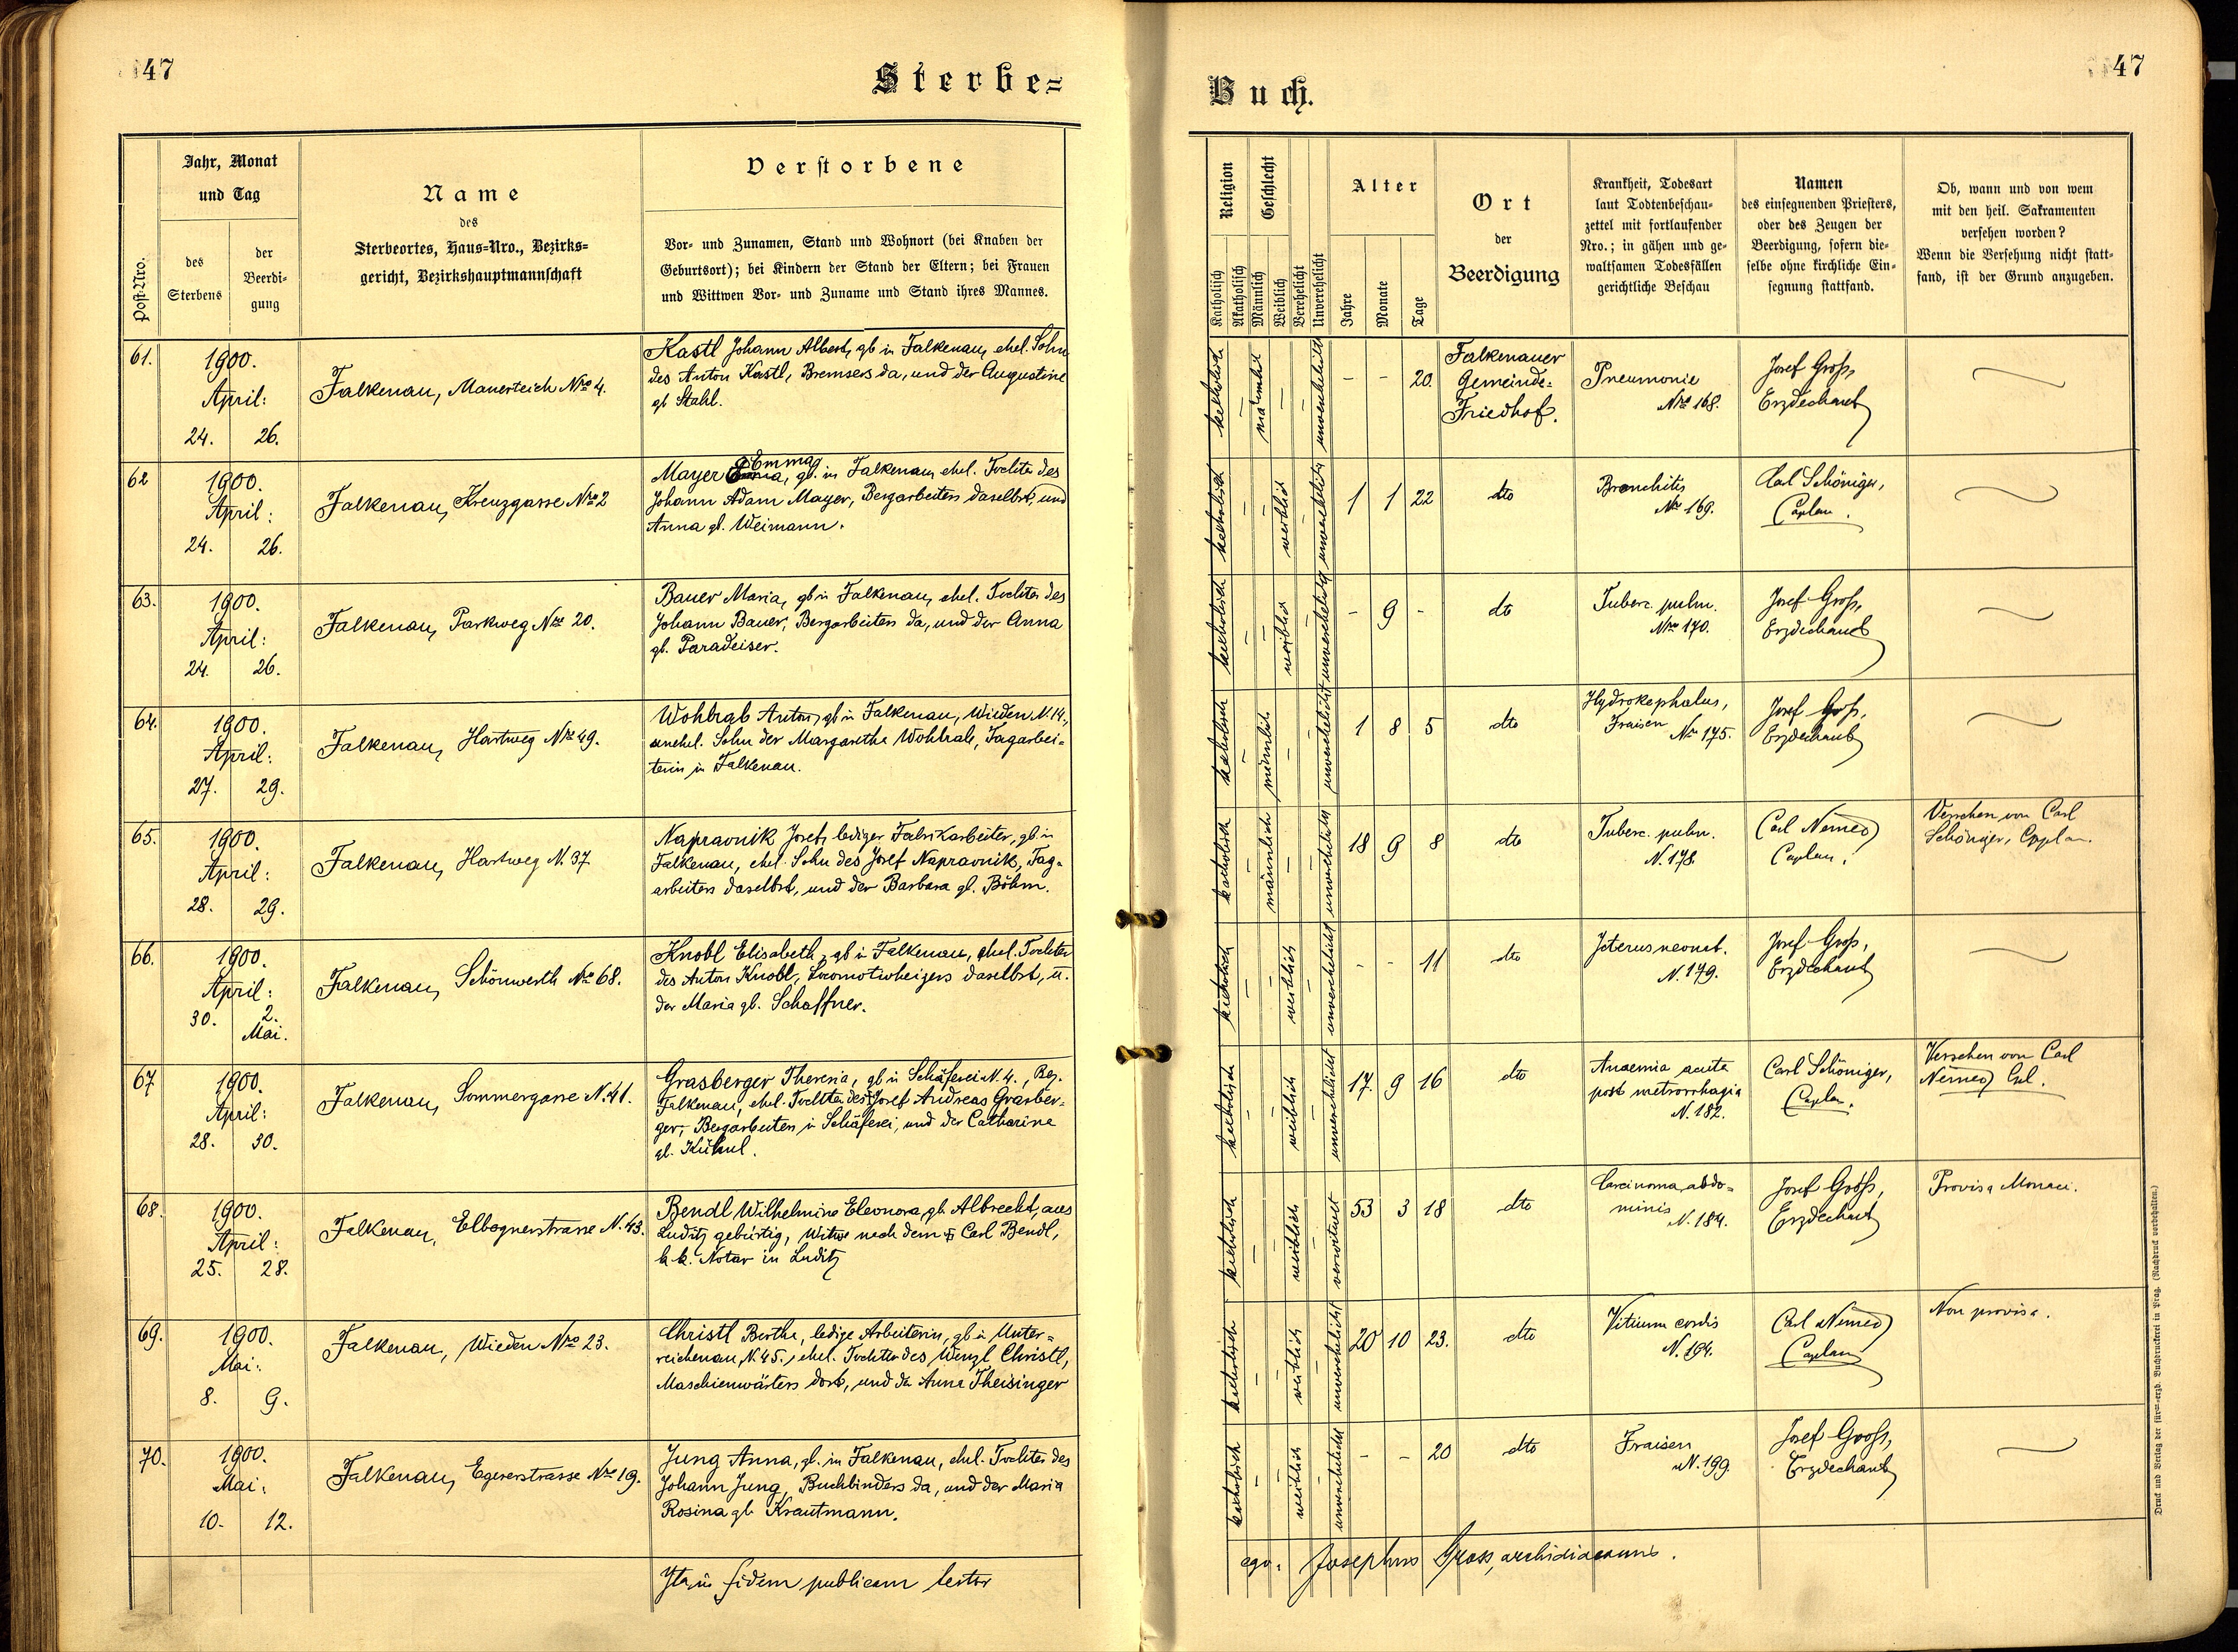 47
Sterbe=
Buch.
47
Post-Nro.
Jahr, Monat
und Tag
des
Sterbens
der
Beerdi-
gung
Name
des
Sterbeortes, Haus-Nro., Bezirks-
gericht, Bezirkshauptmannschaft
Verstorbene
Vor- und Zunamen, Stand und Wohnort (bei Knaben der
Geburtsort); bei Kindern der Stand der Eltern; bei Frauen
und Wittwen Vor- und Zuname und Stand ihres Mannes.
Religion
Katholisch
Akatholisch
Geschlecht
Männlich
Weiblich
Verehelicht
Unverehelicht
Alter
Jahre
Monate
Tage
Ort
der
Beerdigung
Krankheit, Todesart
laut Todtenbeschau-
zettel mit fortlaufender
Nro.; in gähen und ge-
waltsamen Todesfällen
gerichtliche Beschau
Namen
des einsegnenden Priesters,
oder des Zeugen der
Beerdigung, sofern die-
selbe ohne kirchliche Ein-
segnung stattfand.
Ob, wann und von wem
mit den heil. Sakramenten
versehen worden?
Wenn die Versehung nicht statt-
fand, ist der Grund anzugeben.
61.
1900.
April:
24. 26.
Falkenau, Mauerteich Nro 4.
Kastl Johann Albert, gb in Falkenau, ehel. Sohn
des Anton Kastl, Bremsers da, und der Augustine
gb Stahl.
katholisch männlich unverehelicht
- - 20.
Falkenauer
Gemeinde=
Friedhof.
Pneumonie
Nro 168.
Josef Groß,
Erzdechant
62
1900.
April:
24. 26.
Falkenau, Kreuzgasse Nro 2
Emma
Mayer, gb. in Falkenau, ehel. Tochter des
Johann Adam Mayer, Bergarbeiters daselbst, und
Anna gb. Weimann.
katholisch weiblich unverehelicht
1 1 22
dto
Bronchitis
Nro 169.
Carl Schöniger,
Caplan.
63.
1900.
April:
24. 26.
Falkenau, Parkweg Nro 20.
Bauer Maria, gb in Falkenau, ehel. Tochter des
Johann Bauer, Bergarbeiters da, und der Anna
gb. Paradeiser.
katholisch weiblich unverehelicht
- 9 -
dto
Tuberc. pulm.
Nro 170.
Josef Groß,
Erzdechant
64.
1900.
April:
27. 29.
Falkenau, Hartweg Nro 49.
Wohlrab Anton, gb in Falkenau, Wieden N. 14.,
unehel. Sohn der Margaretha Wohlrab, Tagarbei=
terin in Falkenau.
katholisch männlich unverehelicht
1 8 5
dto
Hydrokephalus,
Fraisen Nro 175.
Josef Groß,
Erzdechant
65.
1900.
April:
28. 29.
Falkenau, Hartweg N. 37
Napravnik Josef, lediger Fabriksarbeiter, gb. in
Falkenau, ehel. Sohn des Josef Napravnik, Tag=
arbeiters daselbst, und der Barbara gb. Böhm.
katholisch männlich unverehelicht
18 9 8
dto
Tuberc. pulm.
N. 178
Carl Němec
Caplan.
Versehen von Carl
Schöniger, Caplan.
66.
1900.
April:
30. 2.
Mai.
Falkenau, Schönwerth Nro 68.
Knobl Elisabeth, gb in Falkenau, ehel. Tochter
des Anton Knobl, Locomotivheizers daselbst, u.
der Maria gb. Schaffner.
katholisch weiblich unverehelicht
- - 11
dto
Icterus neonat.
N. 179.
Josef Groß,
Erzdechant
67
1900.
April:
28. 30.
Falkenau, Sommergasse N. 41.
Grasberger Theresia, gb in Schäferei N. 4., Bez.
Falkenau, ehel. Tochter des Josef Andreas Grasber=
ger, Bergarbeiters in Schäferei, und der Catharina
gb. Kühnl.
katholisch weiblich unverehelicht
17 9 16
dto
Anaemia acuta
post metrorrhagia
N. 182.
Carl Schöniger,
Caplan.
Versehen von Carl
Němec,
68.
1900.
April:
25. 28.
Falkenau, Elbognerstrasse N. 43.
Bendl Wilhelmine Eleonora, gb. Albrecht, aus
Luditz gebürtig, Witwe nach dem Carl Bendl,
k.k. Notar in Luditz
katholisch weiblich verwitwet
53 3 18
dto
Carcinoma abdo=
minis
N. 184.
Josef Groß,
Erzdechant
Provisa
69.
1900.
Mai:
8. 9.
Falkenau, Wieden Nro 23.
Christl Bertha, ledige Arbeiterin, gb in Unter=
reichenau, N. 45., ehel. Tochter des Wenzl Christl,
Maschienwärters dort, und der Anna Theisinger
katholisch weiblich unverehelicht
20 10 23.
dto
Vitium cordis
N. 194.
Carl Němec
Caplan
Non provisa.
70.
1900.
Mai:
10. 12.
Falkenau, Egererstrasse Nro 19.
Jung Anna, gb. in Falkenau, ehel. Tochter des
Johann Jung, Buchbinders da, und der Maria
Rosina gb. Krautmann.
katholisch weiblich unverehelicht
- - 20
dto
Fraisen
N. 199.
Josef Groß,
Erzdechant
Ita in fidem publicam testor
ego: Josephus Gross, archidiaconus.
Druck und Verlag der fürst-erzb. Buchdruckerei in Prag. (Nachdruck vorbehalten.)